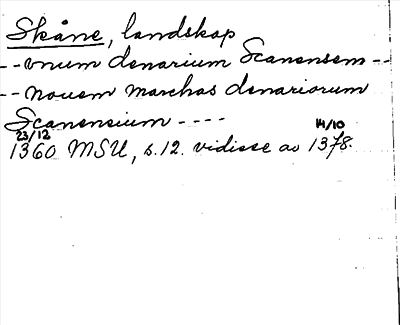 Skåne, landskap
-- vnum denarium Scanensem --
-- nouem marchas denariorum
Scanensium ----
23/12 14/10
1360 MSU, s.12. vidisse av 1378.